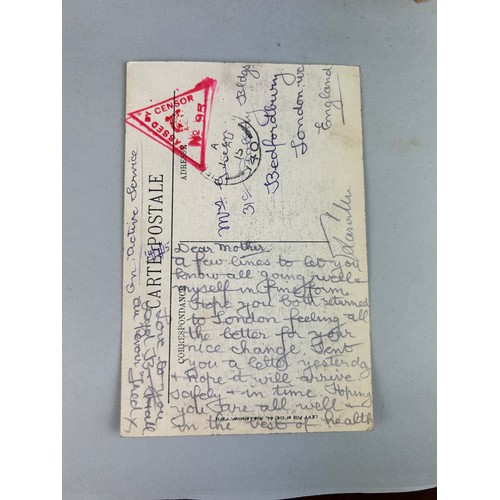 PASSED BY CENSOR
No 95
A
15
40
Mrs
31c Bldgs
Bedfordbury
London. WC
England
CARTE POSTALE
ADRESSE
CORRESPONDANCE
On Active Service
Dear Mother
A few lines to let you
know all going well -
myself in fine form.
Hope you both returned
to London feeling all
the better for your
nice change. Sent
you a letter yesterday
- Hope it will arrive
safely - in time. Hoping
you are all well -
in the best of health
Love to you